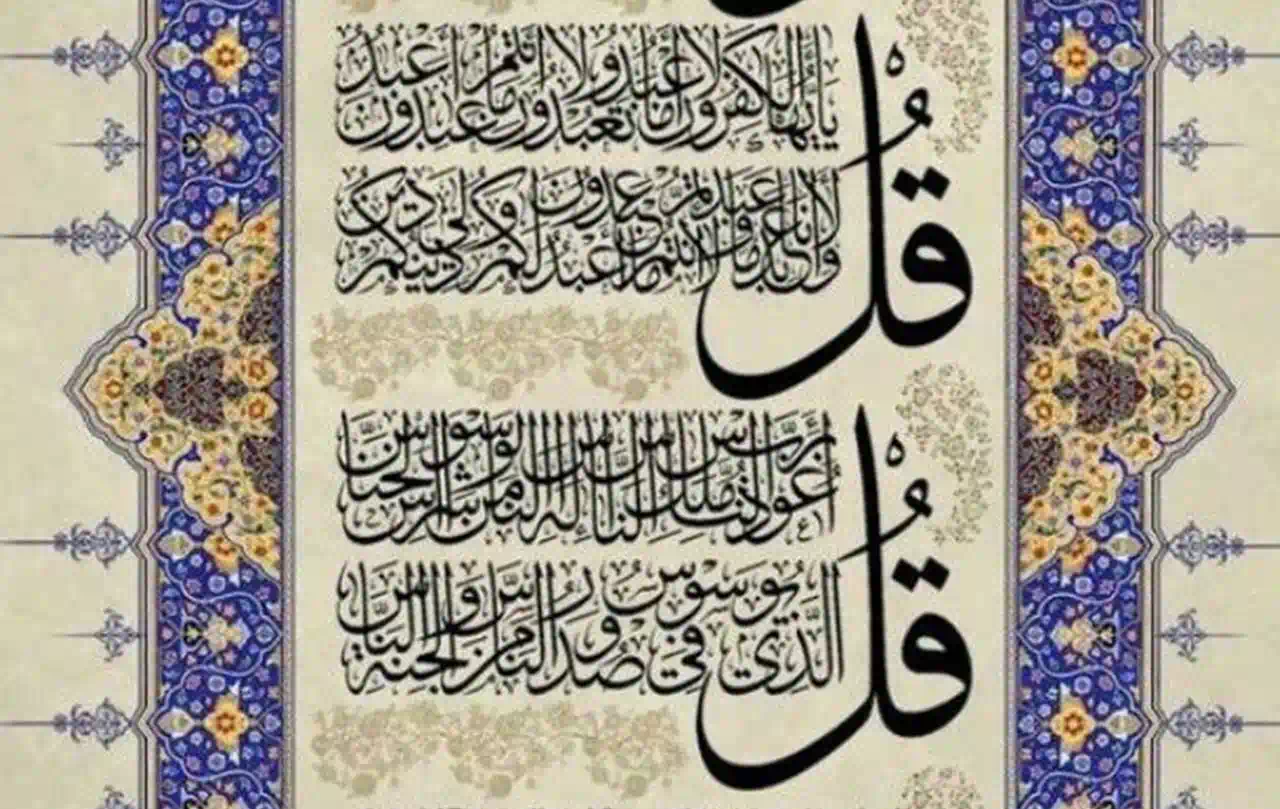 قُلْ يَا أَيُّهَا الْكَفِرُونَ لَا أَعْبُدُ مَا تَعْبُدُونَ وَلَا أَنتُمْ عَبِدُونَ مَا أَعْبُدُ
وَلَا أَنَا عَابِدٌ مَا عَبَدتُّمْ وَلَا أَنتُمْ عَبِدُونَ مَا أَعْبُدُ لَكُمْ دِينُكُمْ وَلِيَ دِينِ
قُلْ أَعُوذُ بِرَبِّ النَّاسِ مَلِكِ النَّاسِ إِلَهِ النَّاسِ مِن شَرِّ الْوَسْوَاسِ الْخَنَّاسِ
الَّذِي يُوَسْوِسُ فِي صُدُورِ النَّاسِ مِنَ الْجِنَّةِ وَالنَّاسِ